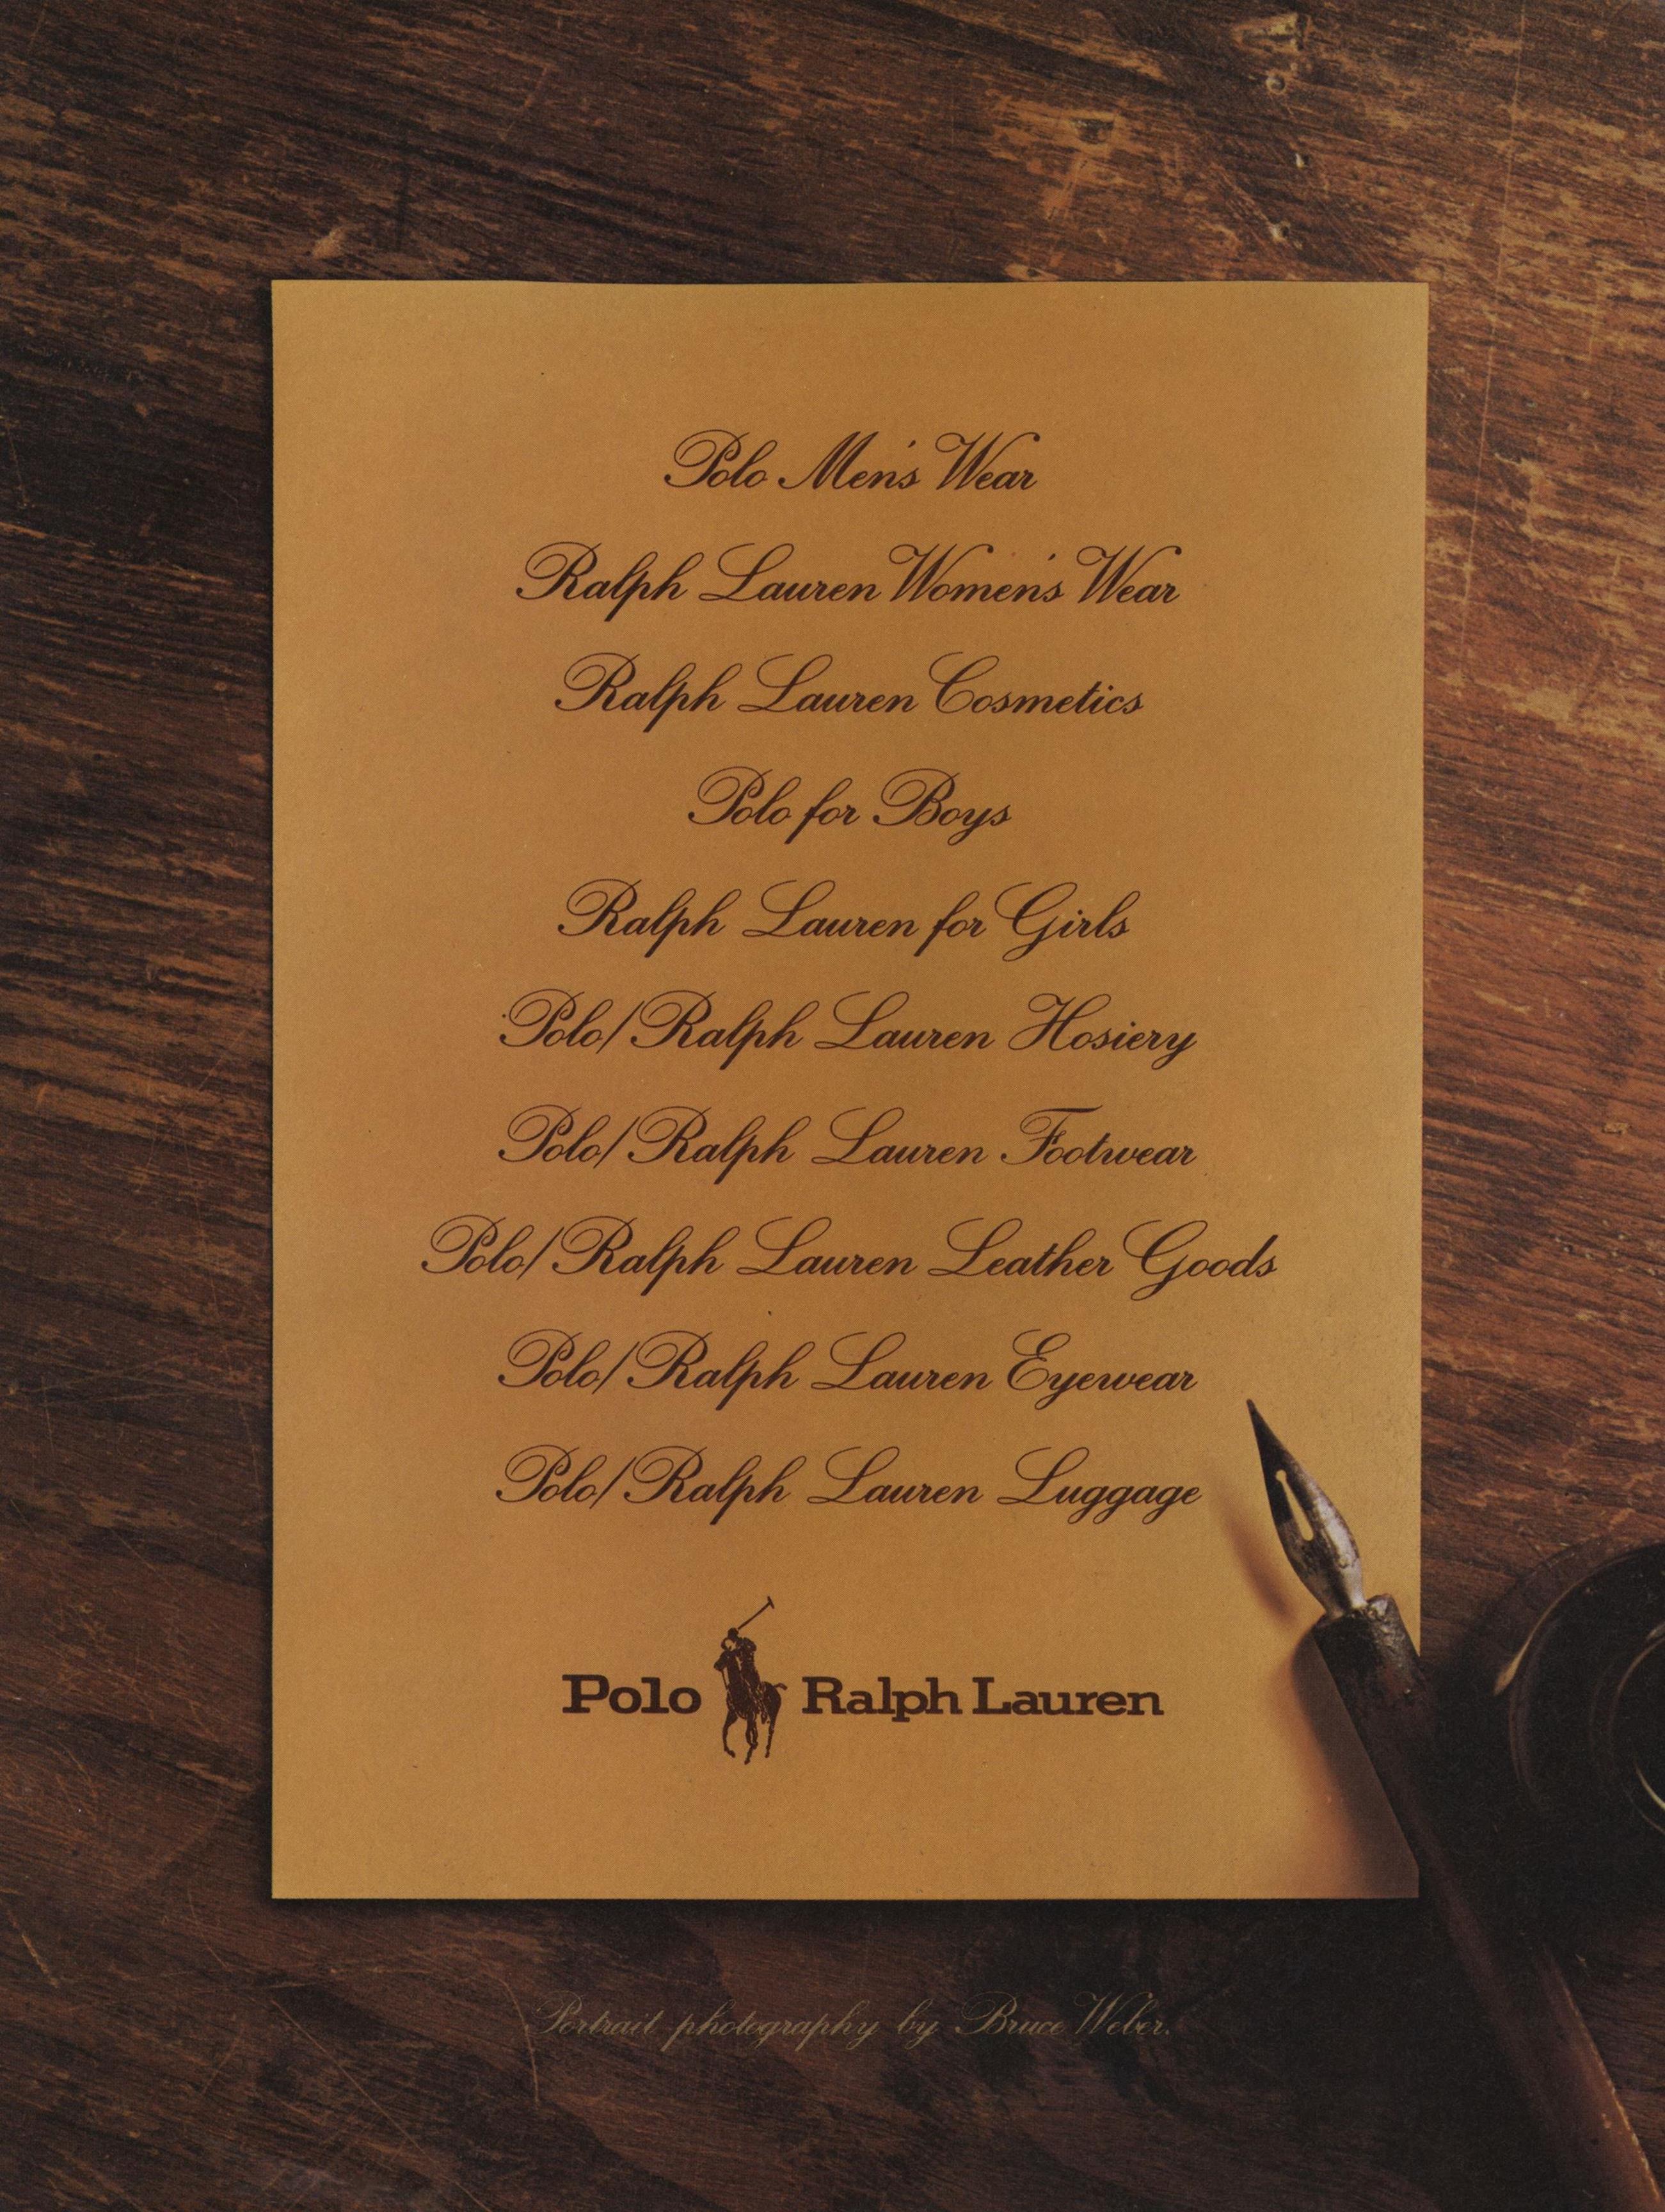 Polo Men's Wear
Ralph Lauren Women's Wear
Ralph Lauren Cosmetics
Polo for Boys
Ralph Lauren for Girls
Polo/Ralph Lauren Hosiery
Polo/Ralph Lauren Footwear
Polo/Ralph Lauren Leather Goods
Polo/Ralph Lauren Eyewear
Polo/Ralph Lauren Luggage
Polo Ralph Lauren
Portrait photography by Bruce Weber.